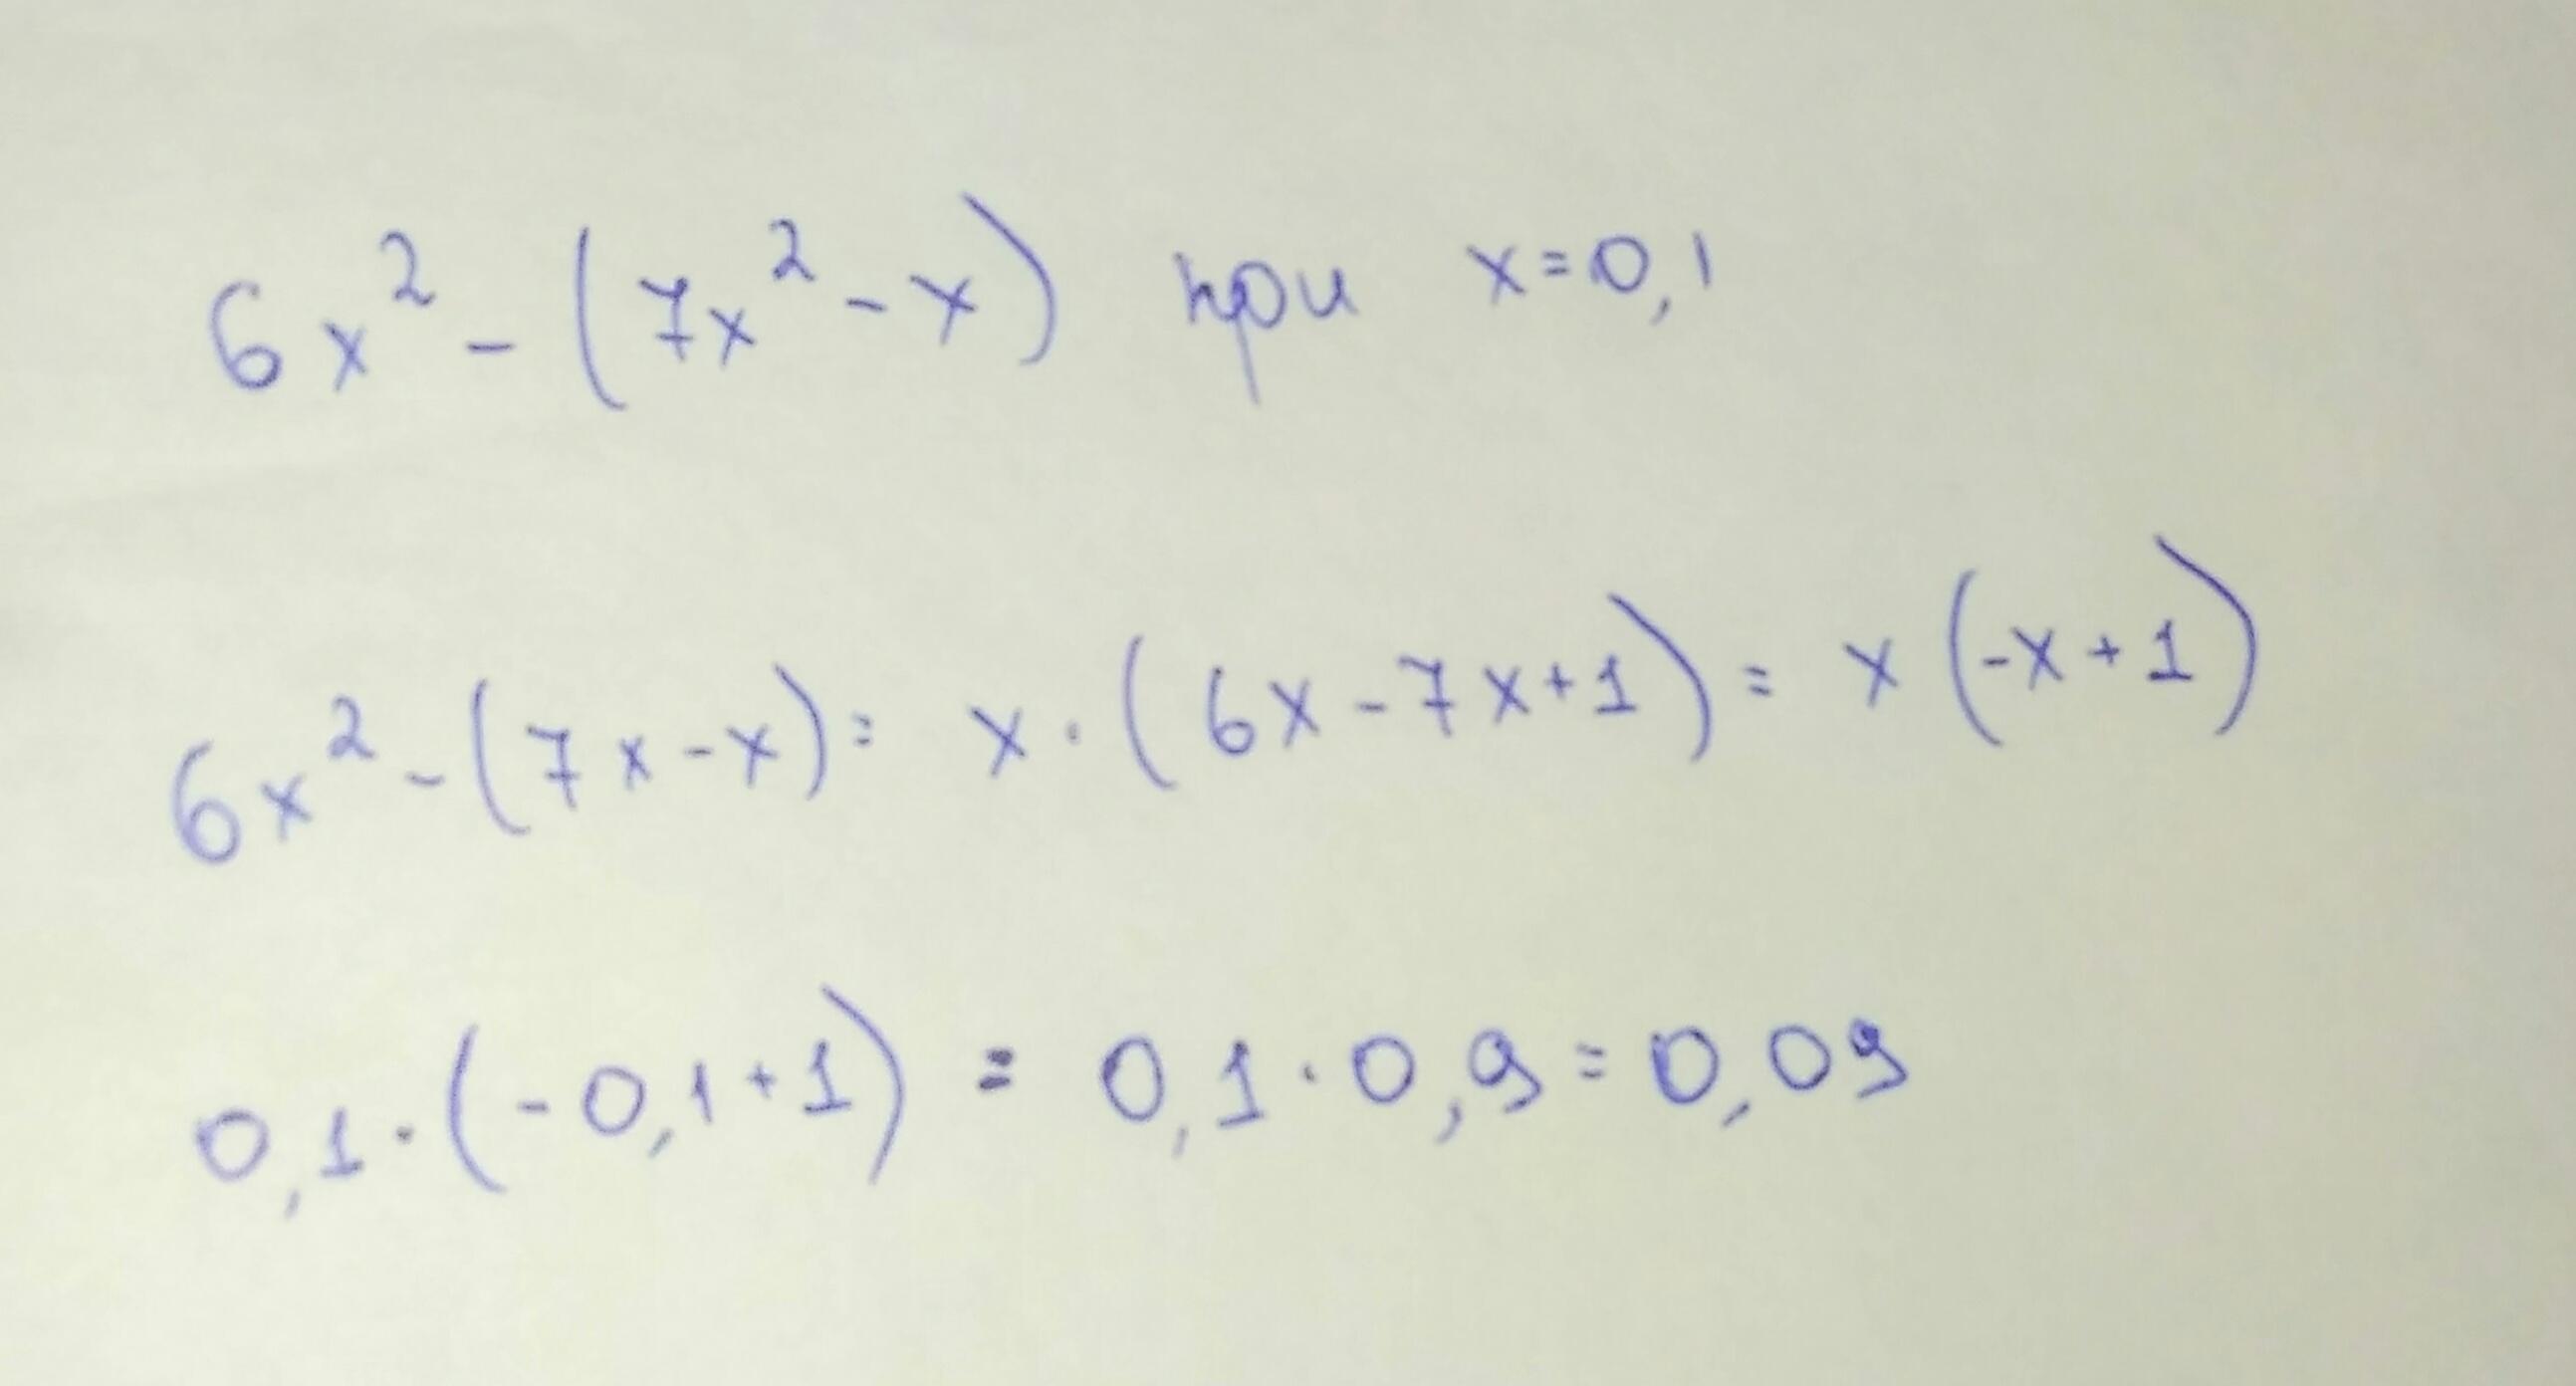 6x² - (7x² - x) при x = 0,1
6x² - (7x - x) = x · (6x - 7x + 1) = x (-x + 1)
0,1 · (-0,1 + 1) = 0,1 · 0,9 = 0,09